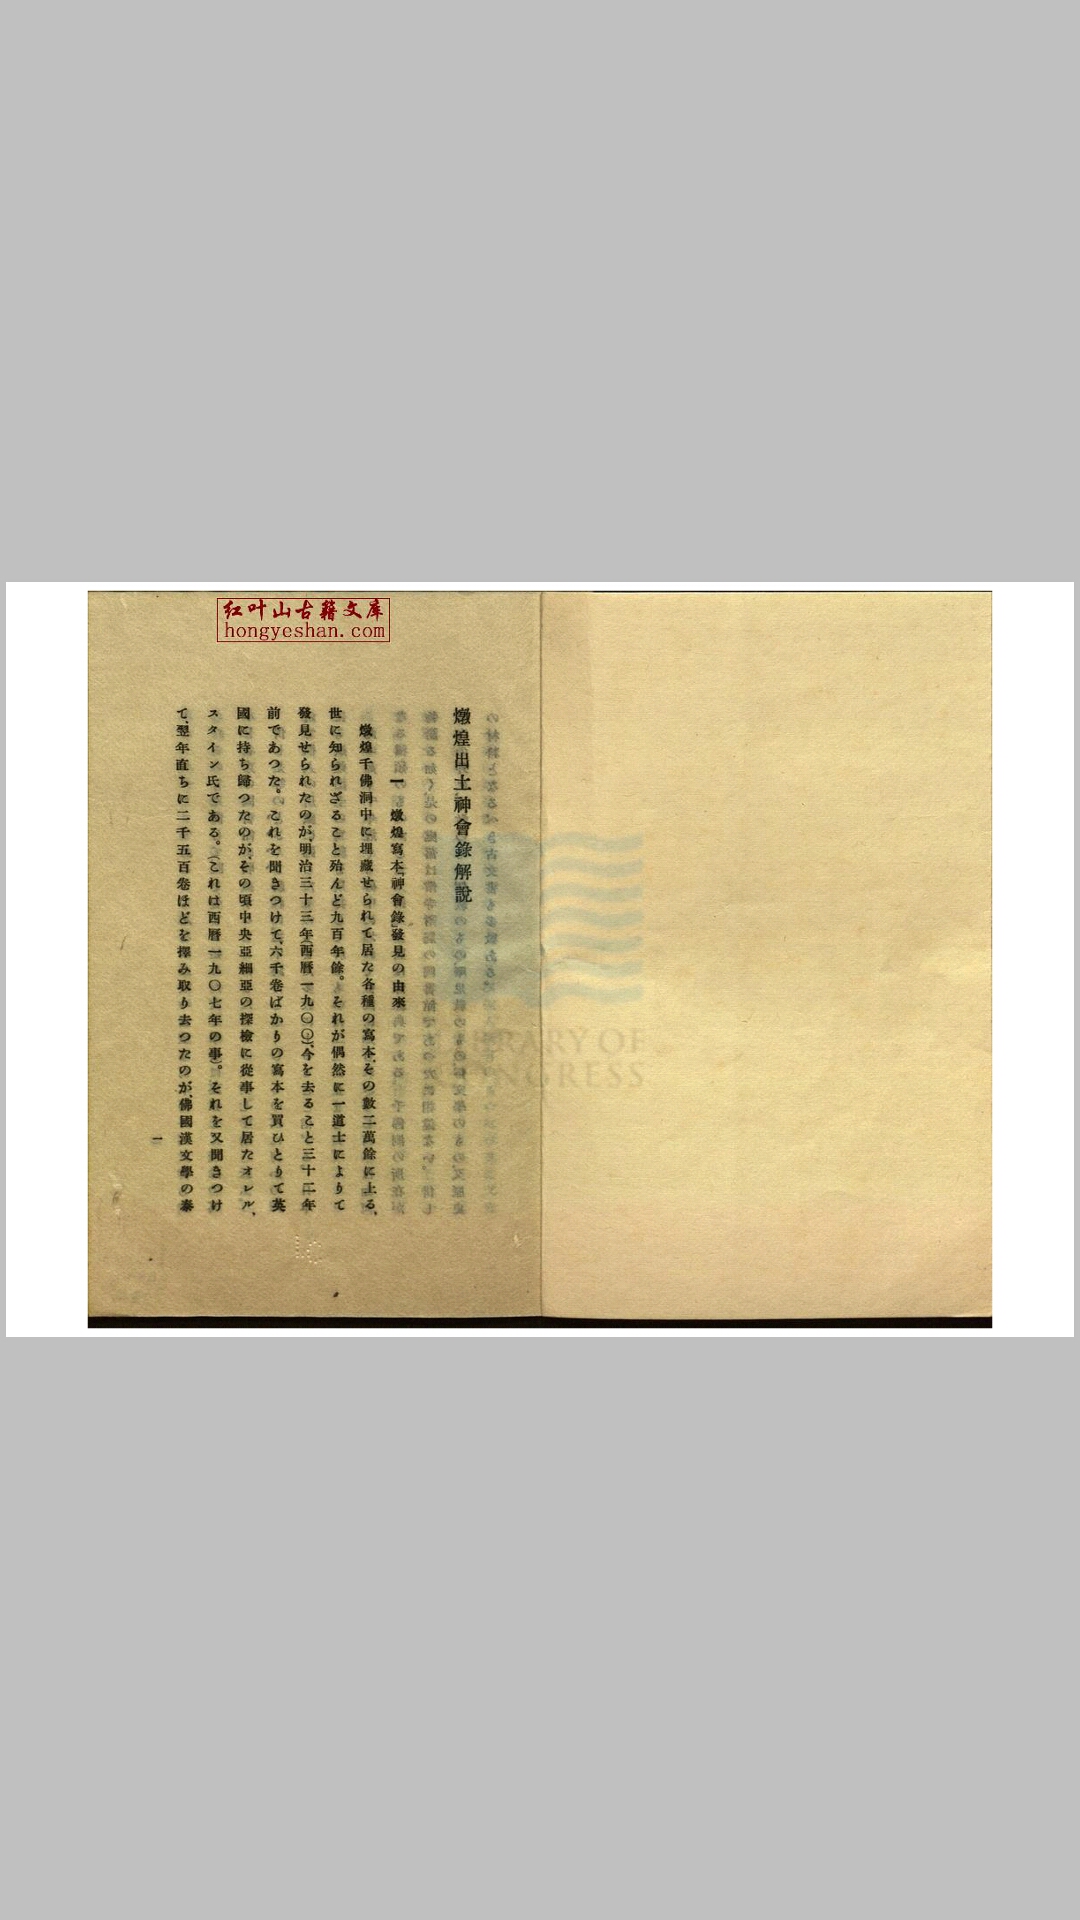 红叶山古籍文库
hongyeshan.com
燉煌出土神會錄解說
一 燉煌寫本「神會錄」發見の由來
燉煌千佛洞中に埋藏せられて居た各種の寫本、その數二萬餘に上る、
世に知られざること殆んど九百年餘。それが偶然に一道士によりて
發見せられたのが、明治三十三年(西曆一九〇〇)、今を去ること三十二年
前であつた。これを聞きつけて、六千卷ばかりの寫本を買ひとりて英
國に持ち歸つたのが、その頃中央亞細亞の探檢に從事して居たオレル、
スタイン氏である。(これは西曆一九〇七年の事)。それを又聞きつけ
て、翌年直ちに二千五百卷ほどを擇み取り去つたのが、佛國漢文學の泰
一
LIBRARY OF
CONGRESS